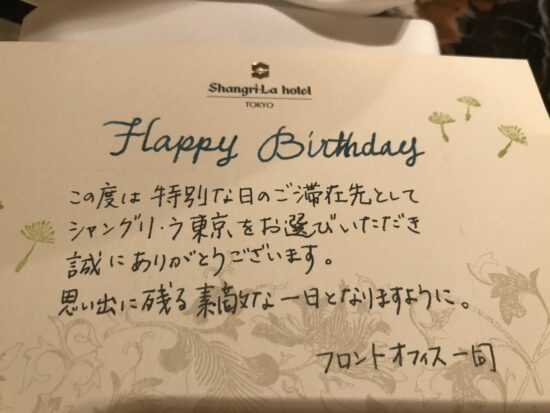 Shangri-La hotel
TOKYO
Happy Birthday
この度は特別な日のご滞在先として
シャングリ・ラ東京をお選びいただき
誠にありがとうございます。
思い出に残る素敵な一日となりますように。
フロントオフィス一同